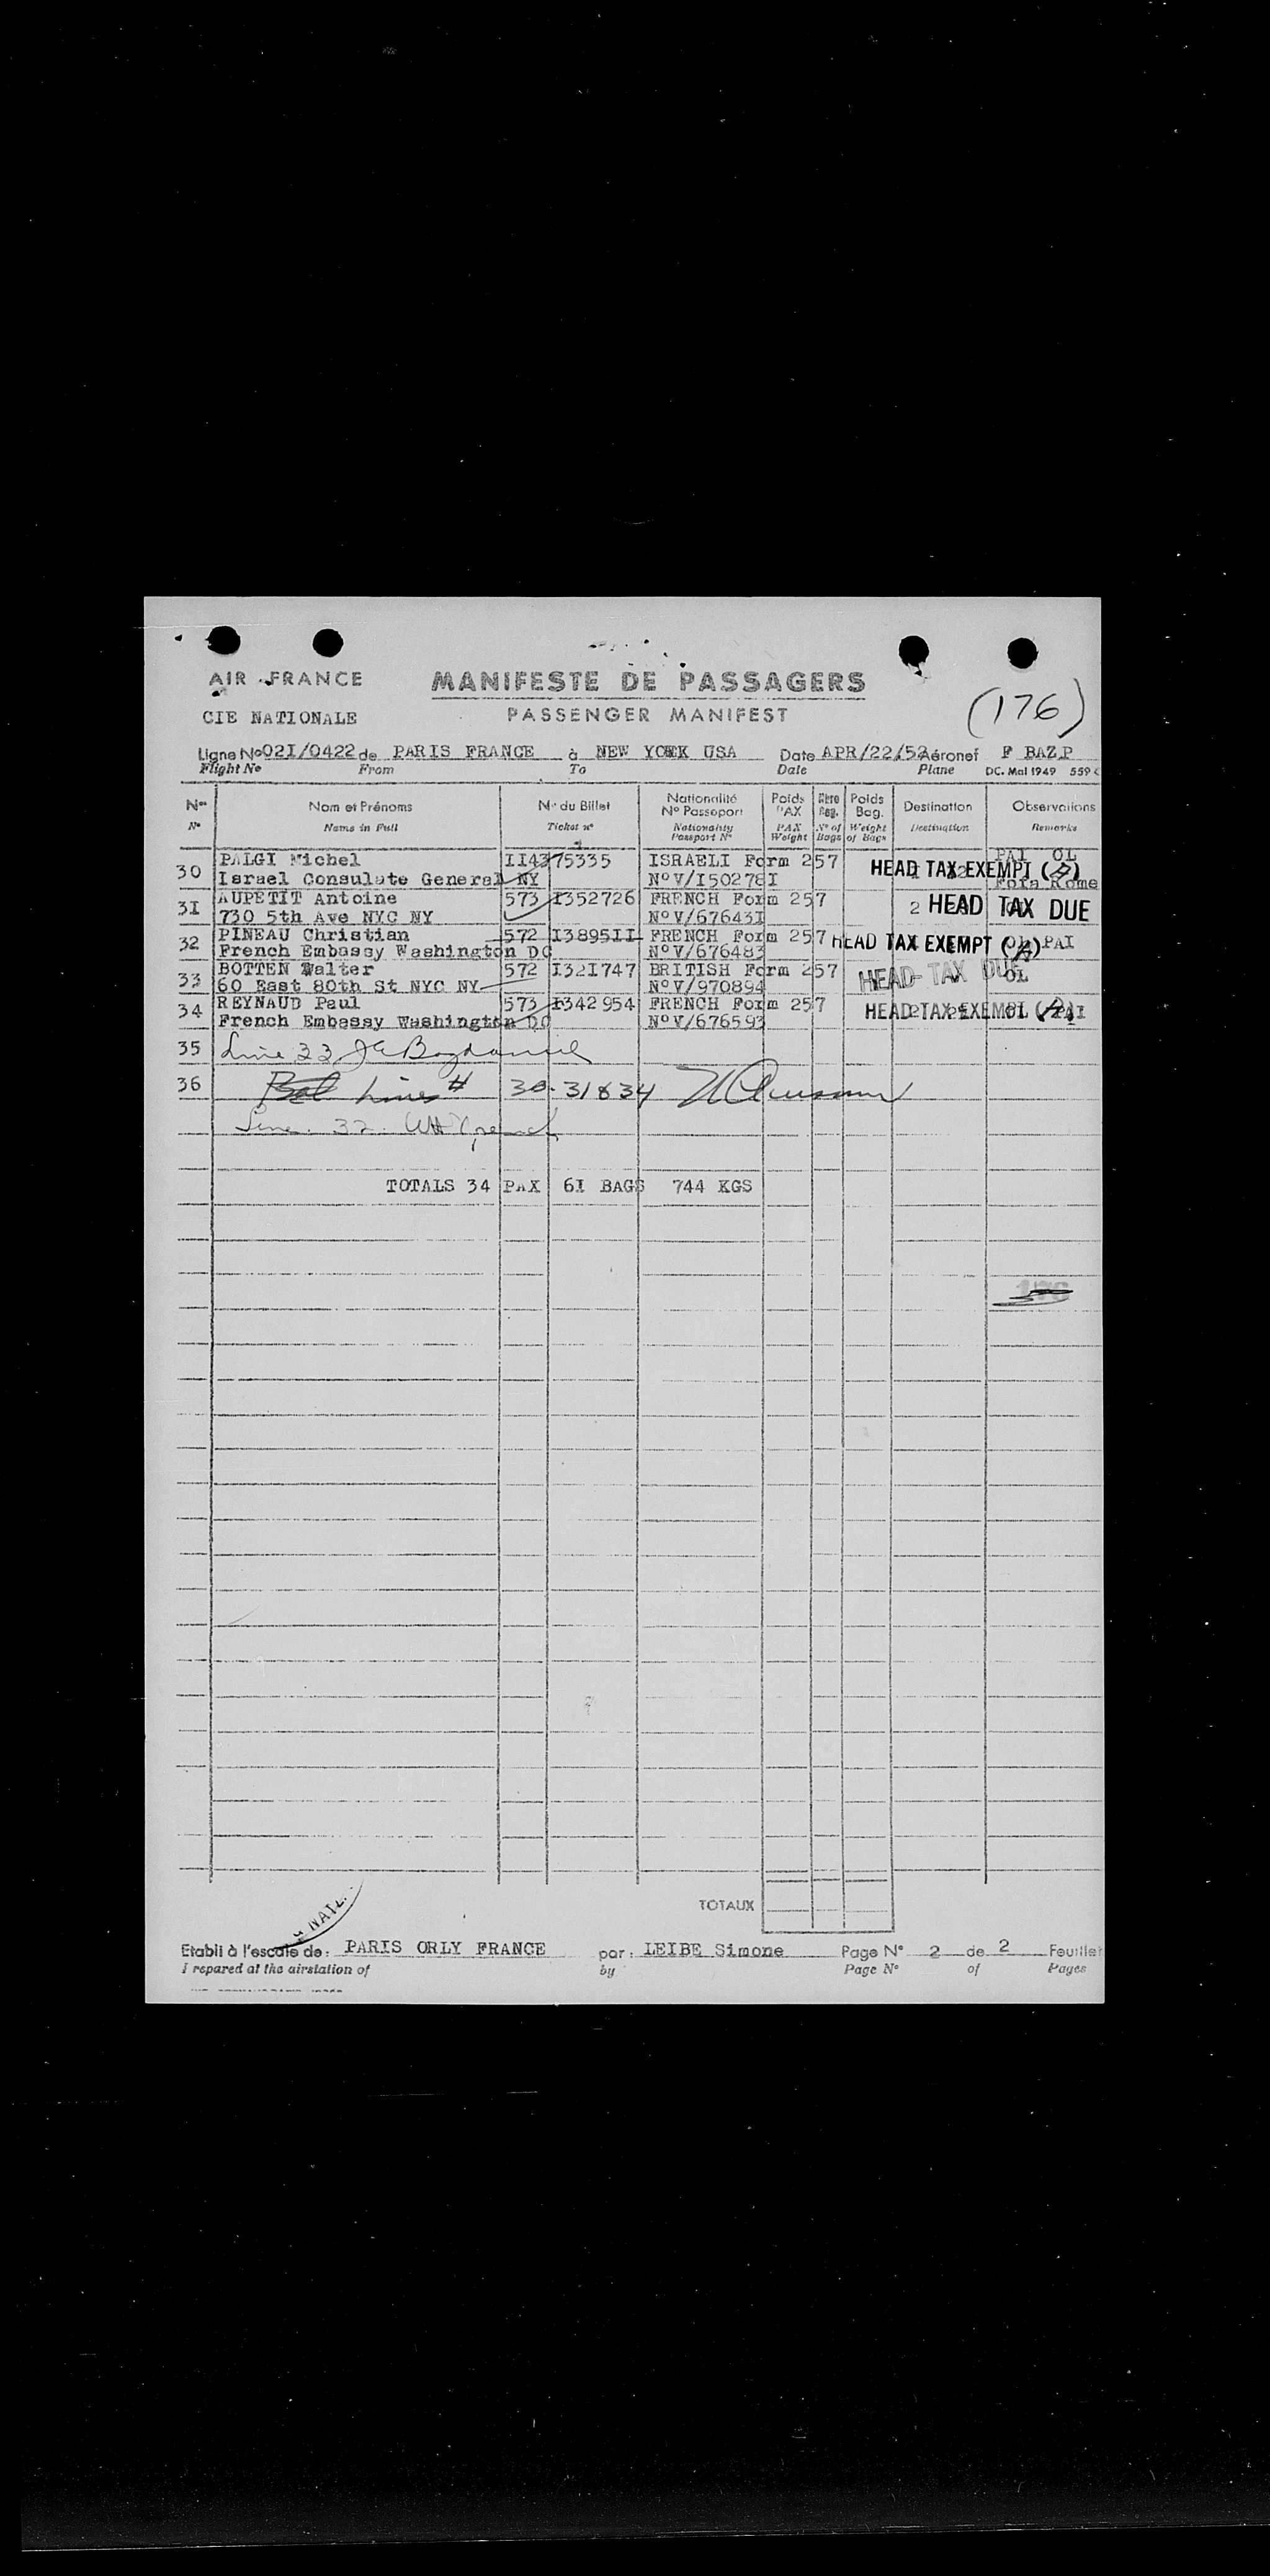 AIR FRANCE
MANIFESTE DE PASSAGERS
CIE NATIONALE
PASSENGER MANIFEST
(176)
Ligne No 02I/0422 de PARIS FRANCE à NEW YORK USA Date APR/22/52 Aéronef F BAZP
Flight No From To Date Plane DC. Mai 1949 559
Nos Nom et Prénoms No du Billet Nationalité No Passeport Poids PAX Nbre Bag. Poids Bag. Destination Observations
No Name in Full Ticket no Nationality Passport No PAX Weight No of Bags Weight of Bags Destination Remarks
30 PALGI Michel II4375335 ISRAELI Form 257 HEAD TAX EXEMPT PAI OL
Israel Consulate General NY NoV/I50278I Rome
3I AUPETIT Antoine 573 I352726 FRENCH Form 257 2 HEAD TAX DUE
730 5th Ave NYC NY NoV/67643I
32 PINEAU Christian 572 I3895II FRENCH Form 257 HEAD TAX EXEMPT PAI
French Embassy Washington DC NoV/676483
33 BOTTEN Walter 572 I32I747 BRITISH Form 257 HEAD TAX DUE OL
60 East 80th St NYC NY NoV/970894
34 REYNAUD Paul 573 I342954 FRENCH Form 257 HEAD TAX EXEMPT PAI
French Embassy Washington DC NoV/676593
35 Line 33
36 Lines # 30-31 & 34
Line 32
TOTALS 34 PAX 6I BAGS 744 KGS
176
TOTAUX
NATL.
Etabli à l'escale de: PARIS ORLY FRANCE par: LEIBE Simone Page No 2 de 2 Feuillet
Prepared at the airstation of by Page No of Pages